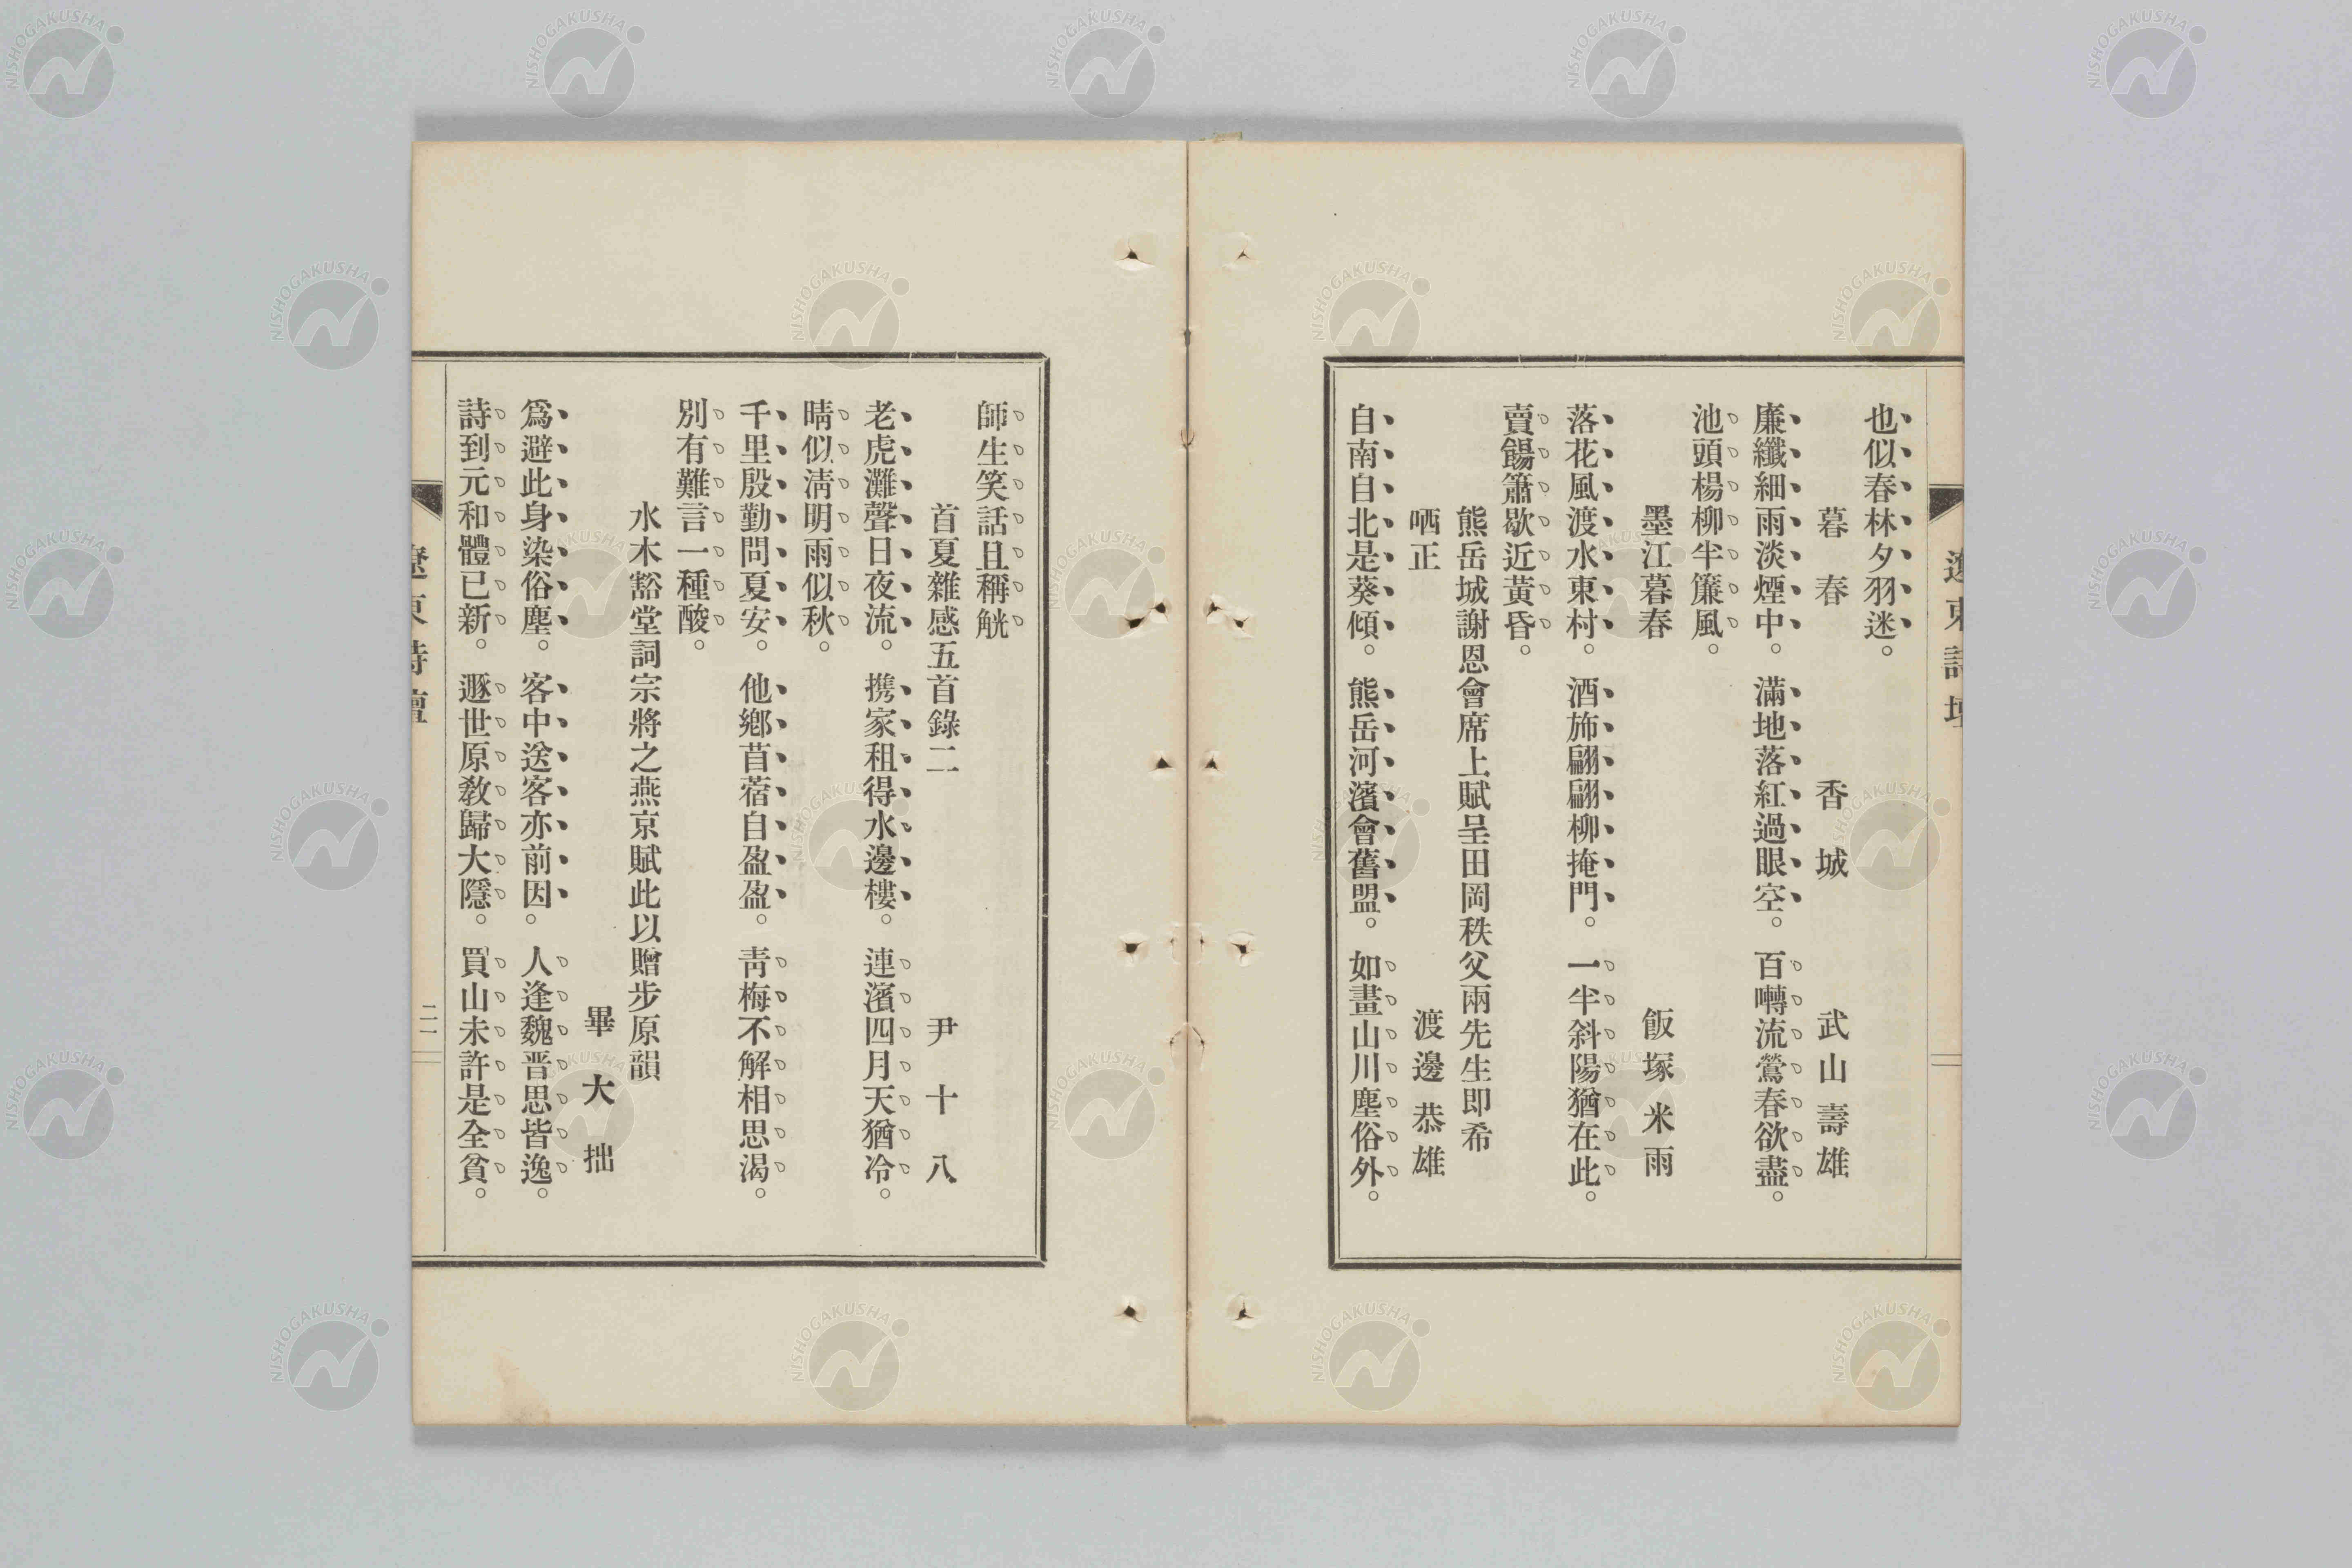 也似春林夕羽迷。
暮春 香城 武山壽雄
廉纖細雨淡煙中。滿地落紅過眼空。百囀流鶯春欲盡。
池頭楊柳半簾風。
墨江暮春 飯塚米雨
落花風渡水東村。酒斾翩翩柳掩門。一半斜陽猶在此。
賣餳簫歇近黃昏。
熊岳城謝恩會席上賦呈田岡秩父兩先生即希
哂正 渡邊恭雄
自南自北是葵傾。熊岳河濱會舊盟。如畫山川塵俗外。
師生笑話且稱觥
首夏雜感五首錄二 尹十八
老虎灘聲日夜流。携家租得水邊樓。連濱四月天猶冷。
晴似淸明雨似秋。
千里殷勤問夏安。他鄉苜蓿自盈盈。靑梅不解相思渴。
別有難言一種酸。
水木豁堂詞宗將之燕京賦此以贈步原韻
畢大拙
爲避此身染俗塵。客中送客亦前因。人逢魏晋思皆逸。
詩到元和體已新。遯世原敎歸大隱。買山未許是全貧。
遼東詩壇
二一
NISHOGAKUSHA